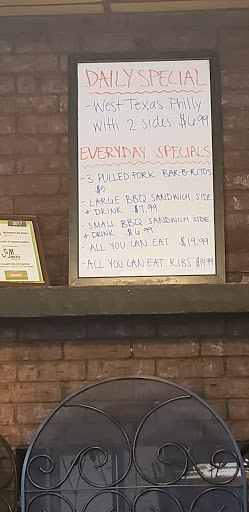 DAILY SPECIAL
- West Texas Philly
with 2 sides $6.99
EVERYDAY SPECIALS
- 3 PULLED PORK BAR-B-RITOS
$5
- LARGE BBQ SANDWICH, SIDE
+ DRINK $7.99
- SMALL BBQ SANDWICH, SIDE
+ DRINK $6.99
- ALL YOU CAN EAT $19.99
- ALL YOU CAN EAT RIBS $14.99